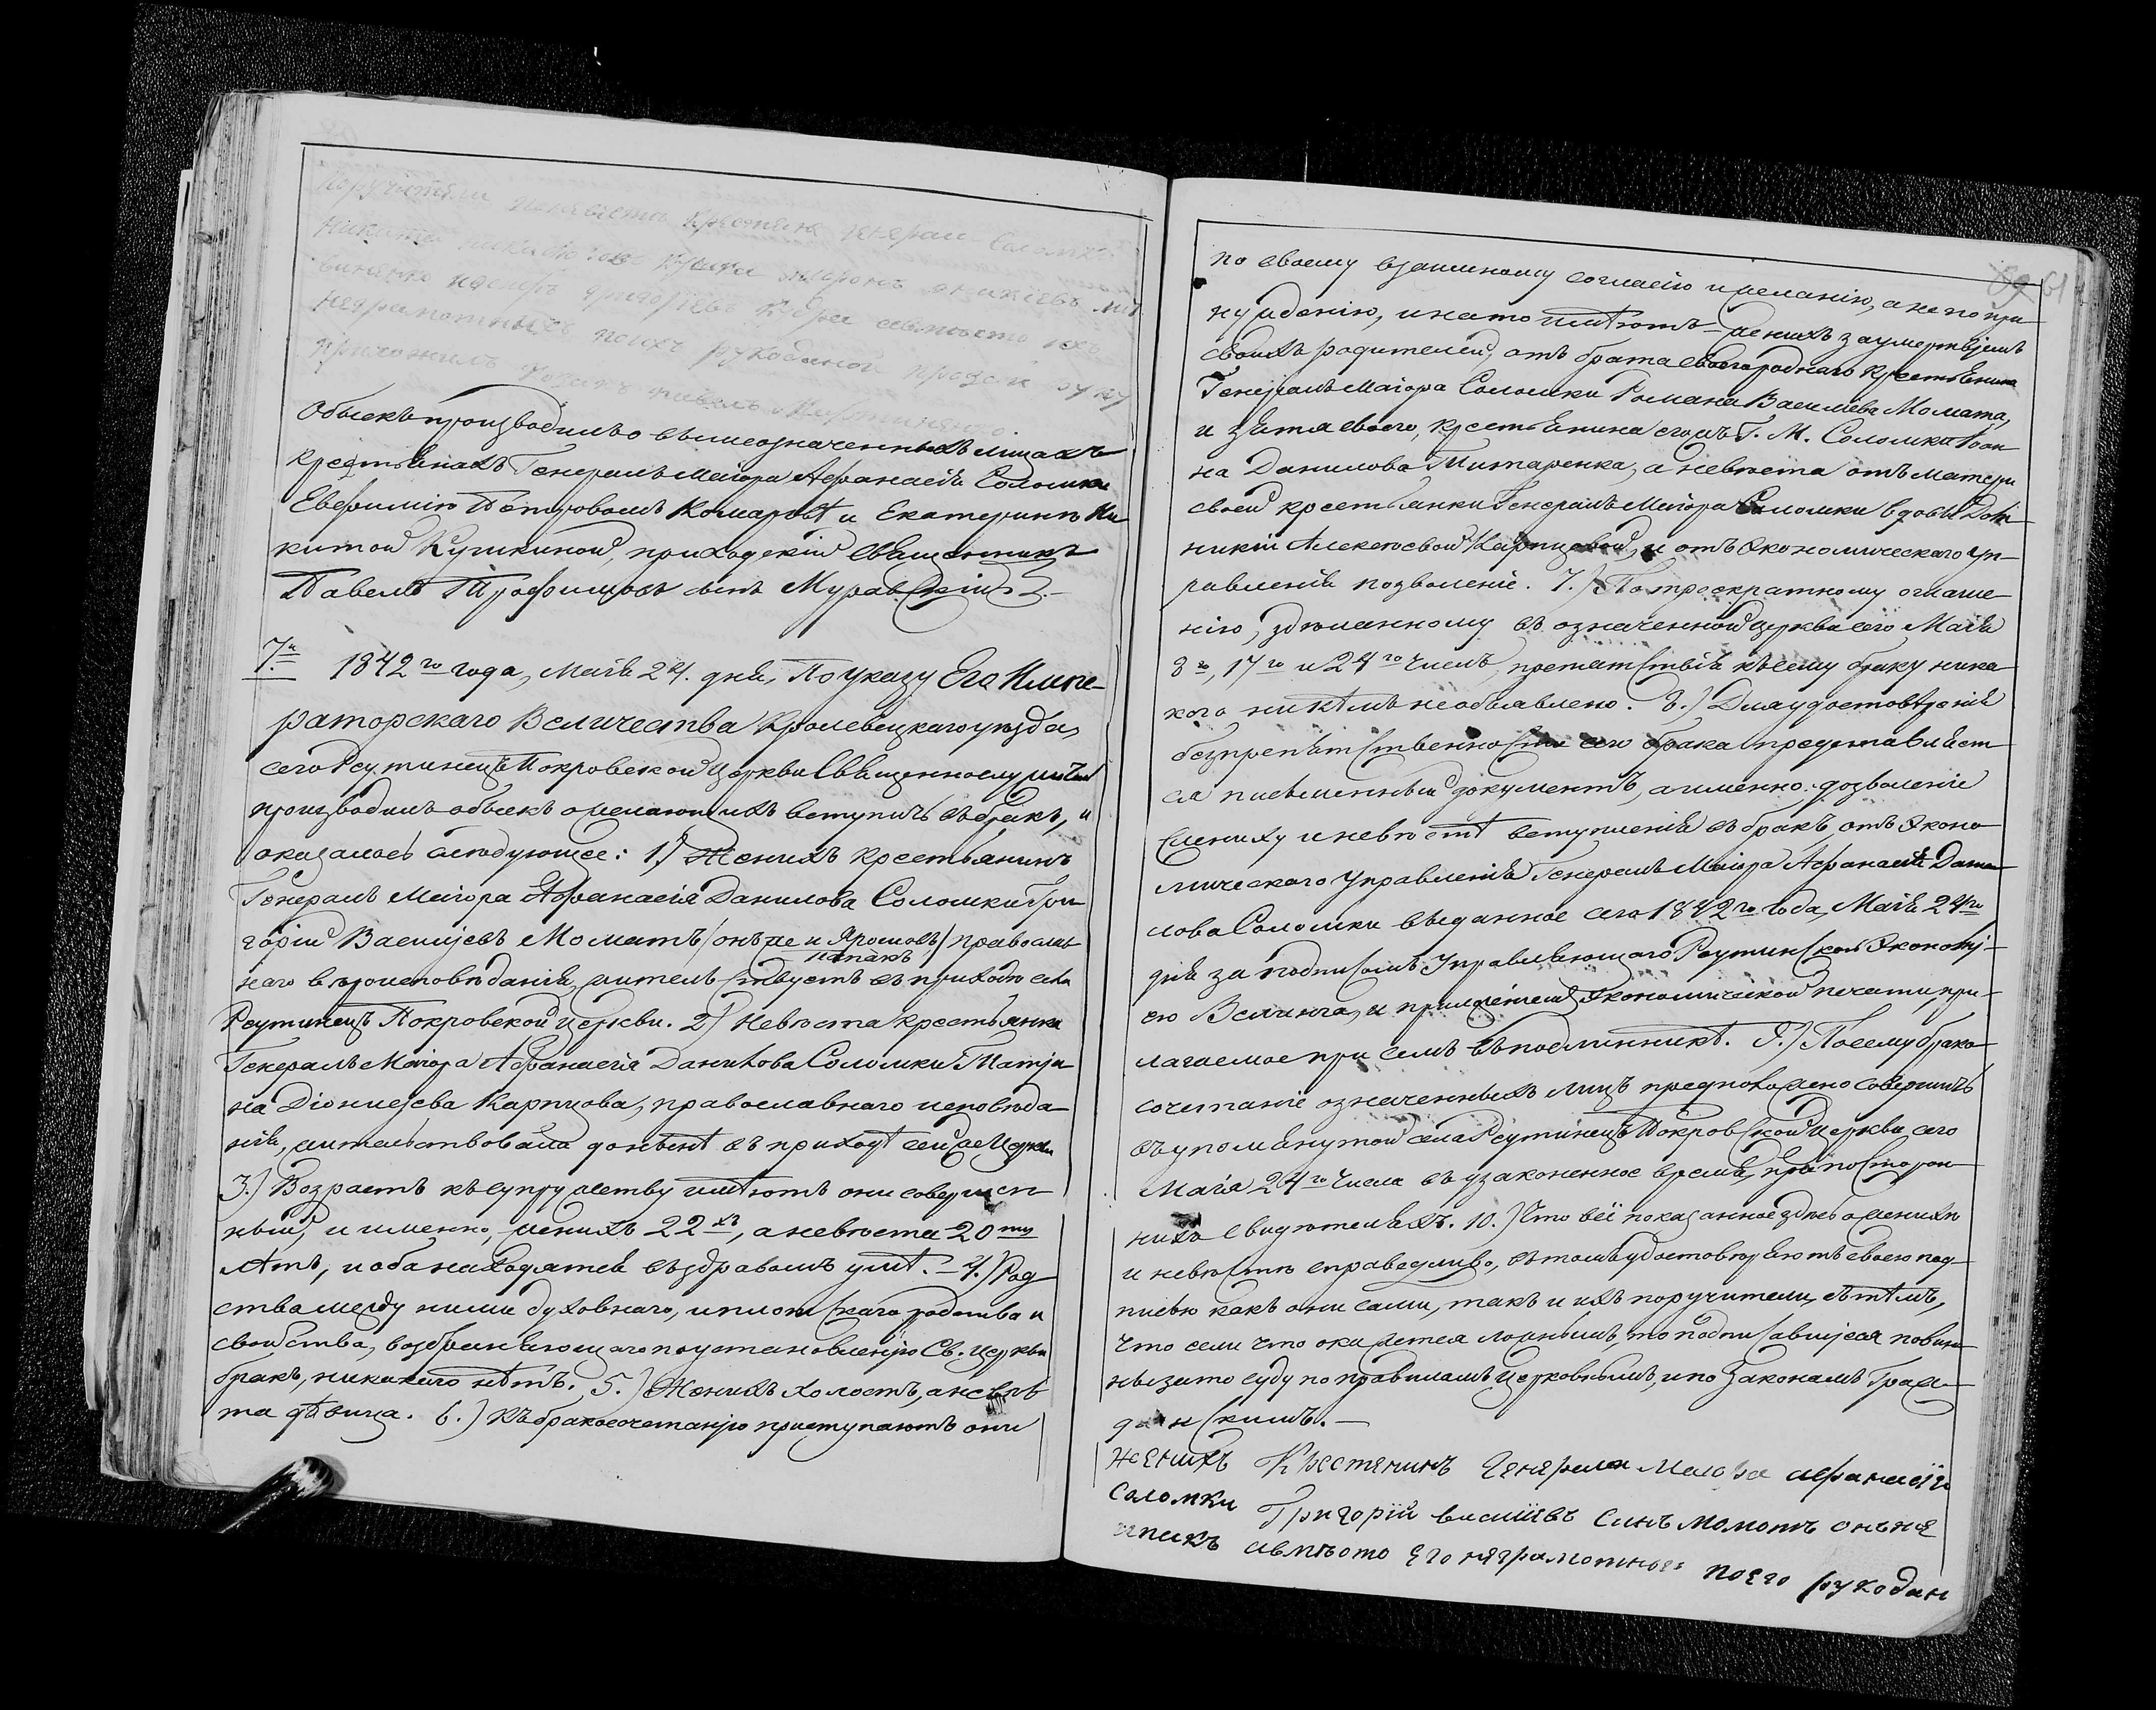 Поручители по невѣста крестяне генерал Соломки
Никита Никифоров Кушка Миронъ Аникіевъ Ли
виненко Несторъ Григоріевъ Кудра авмѣсто ихъ
неграмотныхъ поихъ рукоданой прозби руку
приложилъ козакъ Павелъ Мартиненко.
Обыскъ производилъ о вышеозначенныхъ лицахъ
крестьянахъ Генералъ Маіора Афанасія Соломки
Евфимію Петровомъ Комаровѣ и Екатеринѣ Ни
китой Кушкиной, приходскій Священникъ
Павелъ Трофимовъ сынъ Муравскій
7й 1842го года, Маія 24. дня, По указу Его Импе-
раторскаго Величества Кролевецкаго уѣзда,
села Реутинецъ Покровской Церкви Священнослужители
производилъ обыскъ о желающихъ вступить въ бракъ, и
оказалось слѣдующее: 1.) Женихъ крестьянинъ
Генералъ Маіора Афанасія Данилова Соломки Гри
горій Васильевъ Моматъ /онъ же и Ярошовъ/ православ
Ипакъ
наго вѣроисповѣданія, жительствуетъ въ приходѣ села
Реутинецъ Покровской Церкви. 2.) Невѣста крестьянка
Генералъ Маіора Афанасія Данилова Соломки Татья
на Діонисьева Карпцова, православнаго исповѣда-
нія, жительствовала донынѣ въ приходѣ сей же Церкви
3.) Возрастъ къ супружеству имѣютъ они совершен
ный, и именно, женихъ 22хъ, а невѣста 20ти
лѣтъ, и оба находятся въ здравомъ умѣ. – 4.) Род
ства между ними духовнаго, и плотскаго родства и
свойства, возбраняющаго по установленію Св. Церкви
бракъ, никакого нѣтъ. 5.) Женихъ холостъ, а невѣс
та дѣвица. 6.) Къ бракосочетанію приступаютъ они
69 61
по своему взаимному согласію и желанію, а не по при
нужденію, и на то имѣютъ – женихъ за умертвіемъ
своихъ родителей, отъ брата своего роднаго крестьянина
Генералъ Маіора Соломки Романа Васильева Момата,
и зятя своего, крестьянина егожъ Г. М. Соломки Іоан
на Данилова Титаренка, а невѣста отъ матери
своей крестьянки Генералъ Маіора Соломки вдовы Дом
никіи Алексѣевой Карпцовой, и отъ Экономическаго уп-
равленія позволеніе. 7.) По троекратному оглаше
нію, здѣланному въ означенной Церкви сего Маія
8го, 17го и 24го числъ, препятствія къ сему браку ника
кого никѣмъ необъявлено. 8.) Для удостовѣренія
безпрепятственности сего брака представляет
ся письменный документъ, а именно: дозволеніе
жениху и невѣстѣ вступленія въ бракъ отъ Эконо
мическаго Управленія Генералъ Маіора Афанасія Дани
лова Соломки выданное сего 1842го года, Маія 24го
дня за подписомъ Управляющаго Реутинской Экономі-
ею Велинга, и приложеніемъ Экономической печати при-
лагаемое при семъ въ подлинникѣ. 9.) Посему брако
сочетаніе означенныхъ лицъ предположено совершить
въ упомянутой села Реутинецъ Покровской Церкви сего
Маія 24го числа въ узаконенное время, при посторон
нихъ свидѣтеляхъ. 10.) Что всё показанное здѣсь о женихѣ
и невѣстѣ справедливо, въ томъ удостовѣряютъ своею под-
писью какъ они сами, такъ и ихъ поручители, съ тѣмъ,
что если что окажется ложнымъ, то подписавшіеся повин
ны за то суду по правиламъ Церковнымъ, и по Законамъ Граж-
данскимъ. –
Женихъ Крестенинъ Генерала Маіора афанасія
Соломки Григорій василіевъ Синъ Моматъ онъже
ипакъ авмѣсто его неграмотнаго поего рукодан